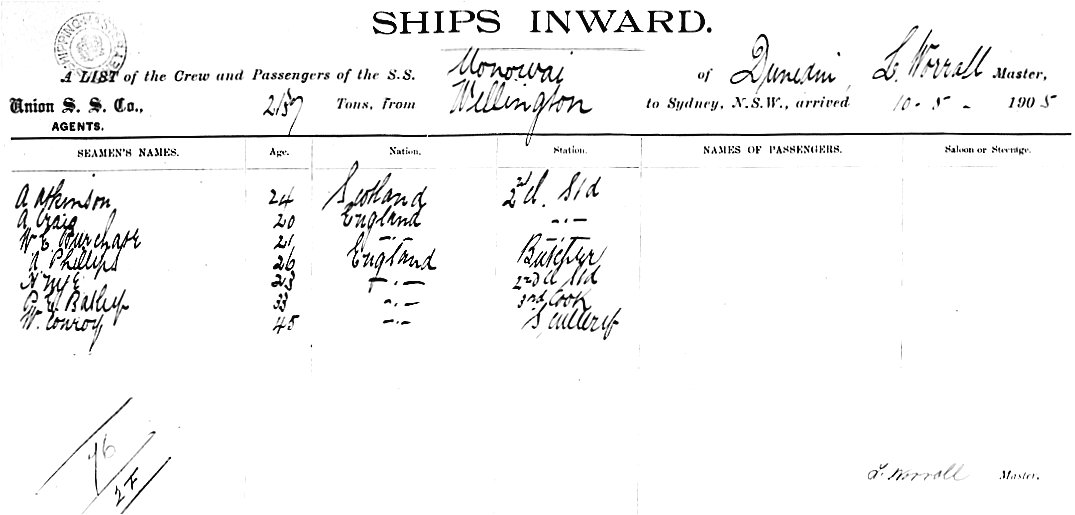 SHIPS INWARD.
A LIST of the Crew and Passengers of the S.S. Monowai of Dunedin, L. Worrall Master,
Union S. S. Co., 2137 Tons, from Wellington to Sydney, N.S.W., arrived 10-5- 1905
AGENTS.
SEAMEN'S NAMES. Age. Nation. Station. NAMES OF PASSENGERS. Saloon or Steerage.
A Atkinson 24 Scotland 2nd Cl. Std
A Craig 20 England -"-
W E Burchase 21 -"- -"-
A. Phillips 26 England Butcher
H Nye 23 -"- 2nd Cl Std
G. E. Bailey 33 -"- 3rd Cook
W. Conroy 45 -"- Scullery
76
27
L. Worrall Master.